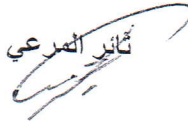 ثائر المرعي